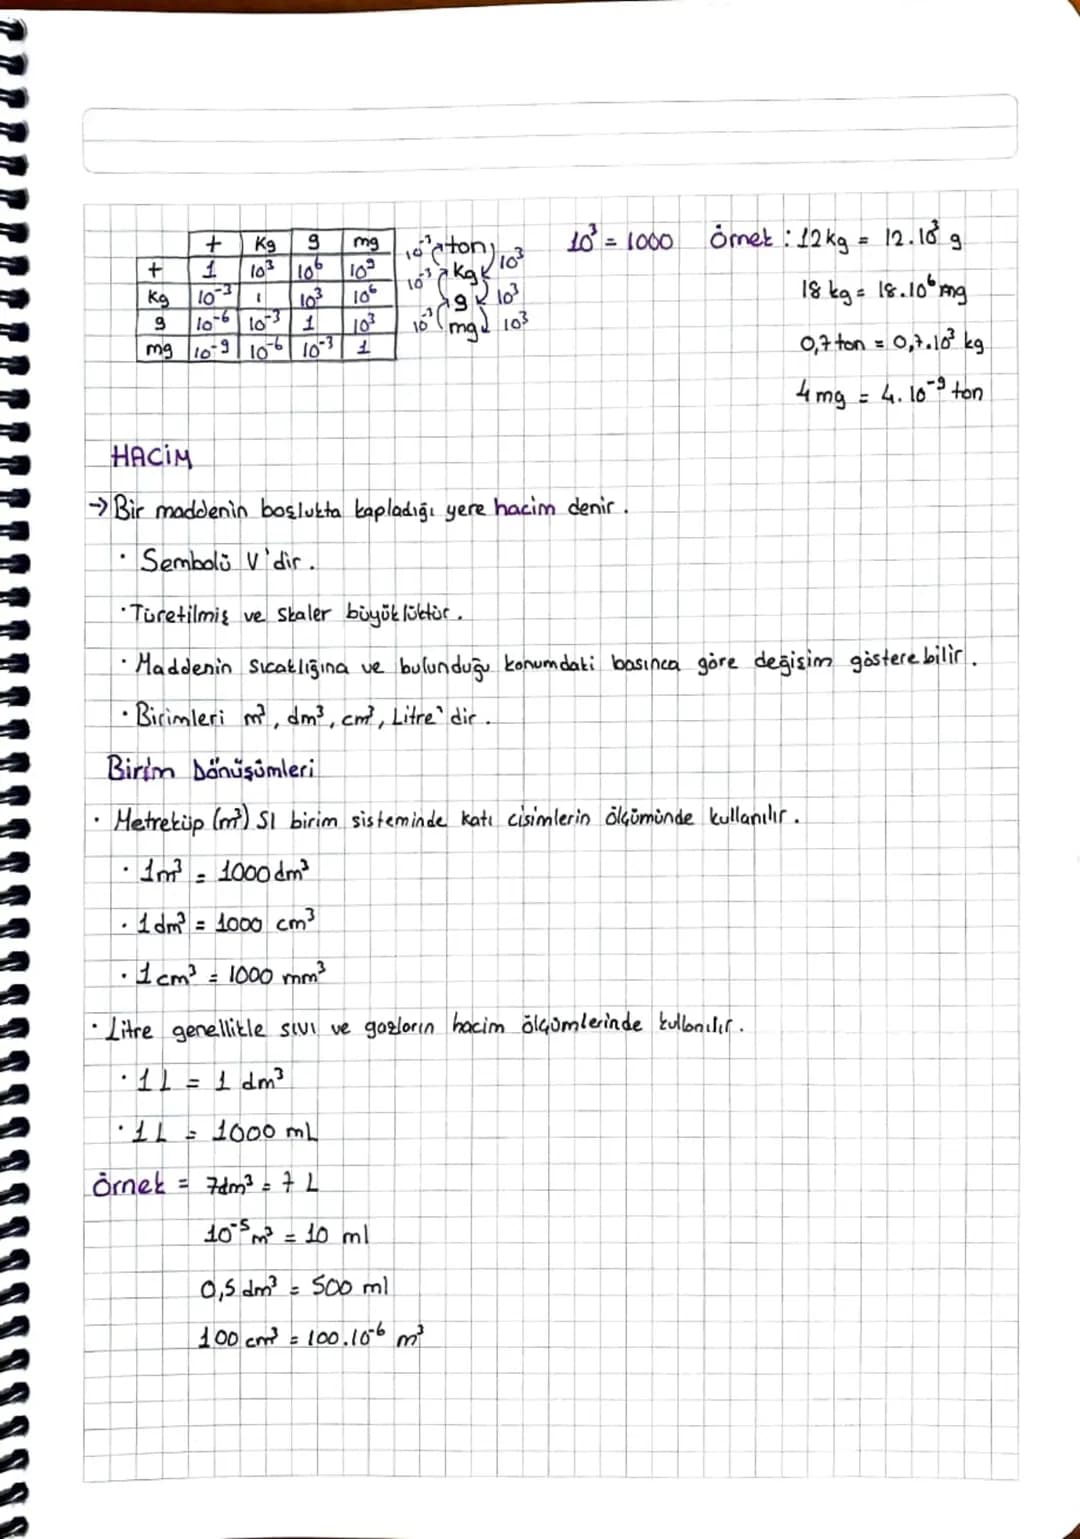 t Kg g mg
t 1 10³ 10⁶ 10⁹
Kg 10⁻³ 1 10³ 10⁶
g 10⁻⁶ 10⁻³ 1 10³
mg 10⁻⁹ 10⁻⁶ 10⁻³ 1
10⁻³ ton 10³
10⁻³ kg 10³
10⁻³ g 10³
mg
10³ = 1000
Örnek : 12 kg = 12.10³ g
18 kg = 18.10⁶ mg
0,7 ton = 0,7.10³ kg
4 mg = 4.10⁻⁹ ton
HACİM
→ Bir maddenin boşlukta kapladığı yere hacim denir.
• Sembolü V'dir.
• Türetilmiş ve skaler büyüklüktür.
• Maddenin sıcaklığına ve bulunduğu konumdaki basınca göre değişim gösterebilir.
• Birimleri m³, dm³, cm³, Litre'dir.
Birim Dönüşümleri
• Metreküp (m³) SI birim sisteminde katı cisimlerin ölçümünde kullanılır.
• 1m³ = 1000 dm³
• 1 dm³ = 1000 cm³
• 1 cm³ = 1000 mm³
• Litre genellikle sıvı ve gazların hacim ölçümlerinde kullanılır.
• 1 L = 1 dm³
• 1 L = 1000 mL
Örnek = 7dm³ = 7 L
10⁻⁵ m³ = 10 ml
0,5 dm³ = 500 ml
100 cm³ = 100.10⁻⁶ m³